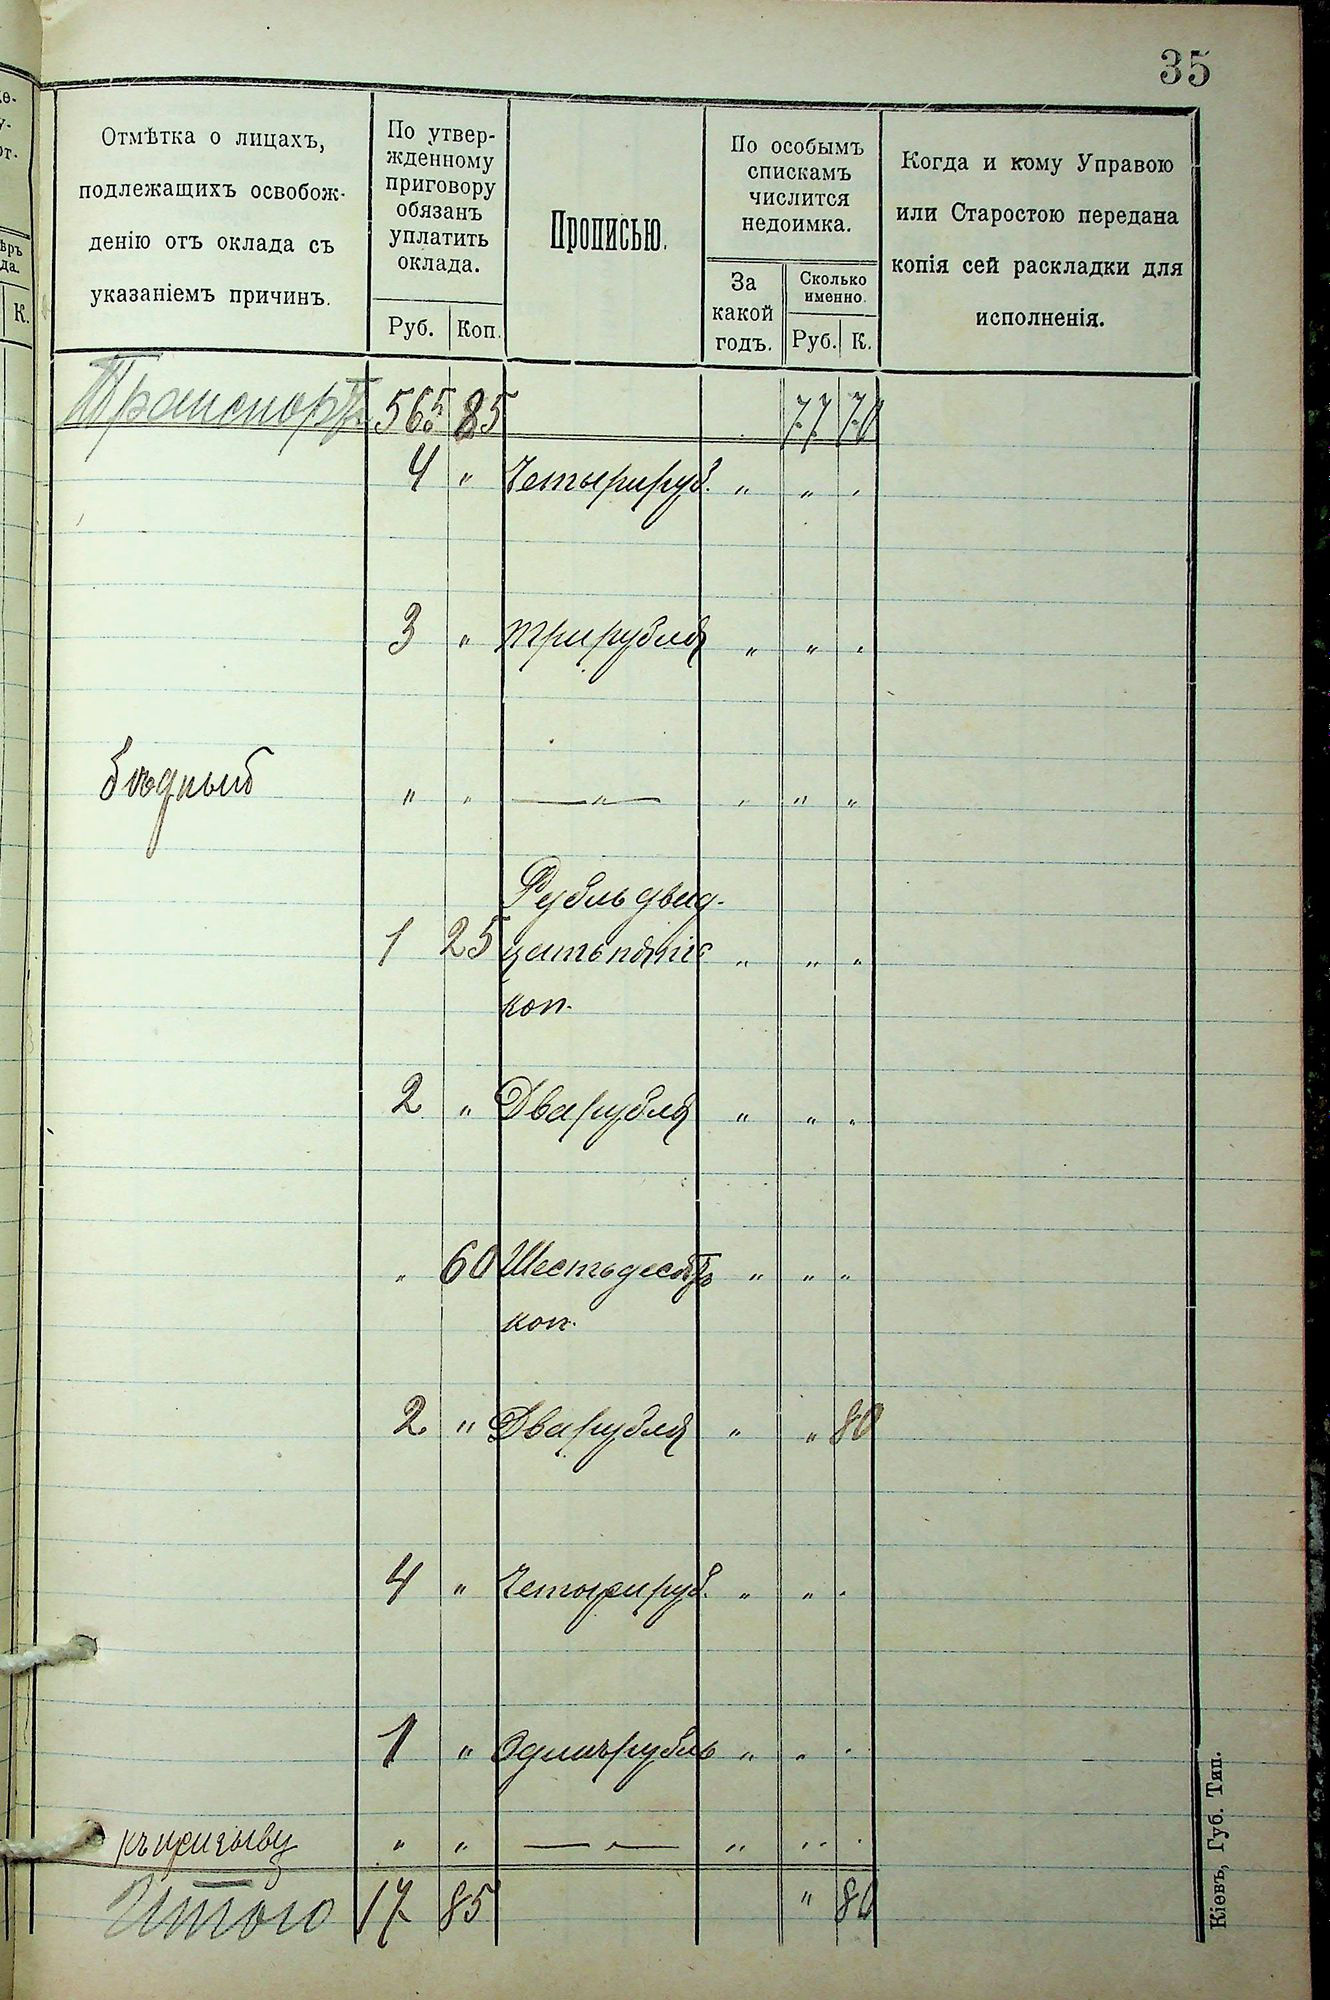 35
Отмѣтка о лицахъ,
подлежащихъ освобож-
денію отъ оклада съ
указаніемъ причинъ.
По утвер-
жденному
приговору
обязанъ
уплатить
оклада.
Руб. Коп.
Прописью.
По особымъ
спискамъ
числится
недоимка.
За
какой
годъ.
Сколько
именно.
Руб. К.
Когда и кому Управою
или Старостою передана
копія сей раскладки для
исполненія.
К.
Транспортъ 565 85 77 70
4 " Четыри руб. " " "
3 " три рубля " " "
бѣдный " " — " — " " "
Рубль двад-
1 25 цать пять " " "
коп.
2 " Два рубля " " "
" 60 Шестьдесятъ " " "
коп.
2 " Два рубля " " 80
4 " Четыри руб. " " "
1 " Одинъ рубль " " "
къ призыву " " — " — " " "
Итого 17 85 " 80
Кіевъ, Губ. Тип.